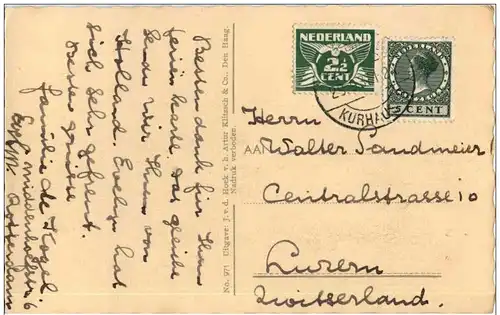 Besten dank für Ihre
ferien karte. Das gleiche
senden wir Ihnen von
Holland Evelyn hat
sich sehr gefreut.
Beste grüsse
familie de Kogel
Middenhofstr. 6
Rotterdam
No. 971 Uitgave: J. v. d. Hoek v.h. Artur Klitzsch & Co., Den Haag.
Nadruk verboden.
NEDERLAND
2½
CENT
NEDERLAND
5 CENT
KURHAUS
Herrn
AAN Walter Sandmeier
Centralstrasse 10
Luzern
Zwitserland.